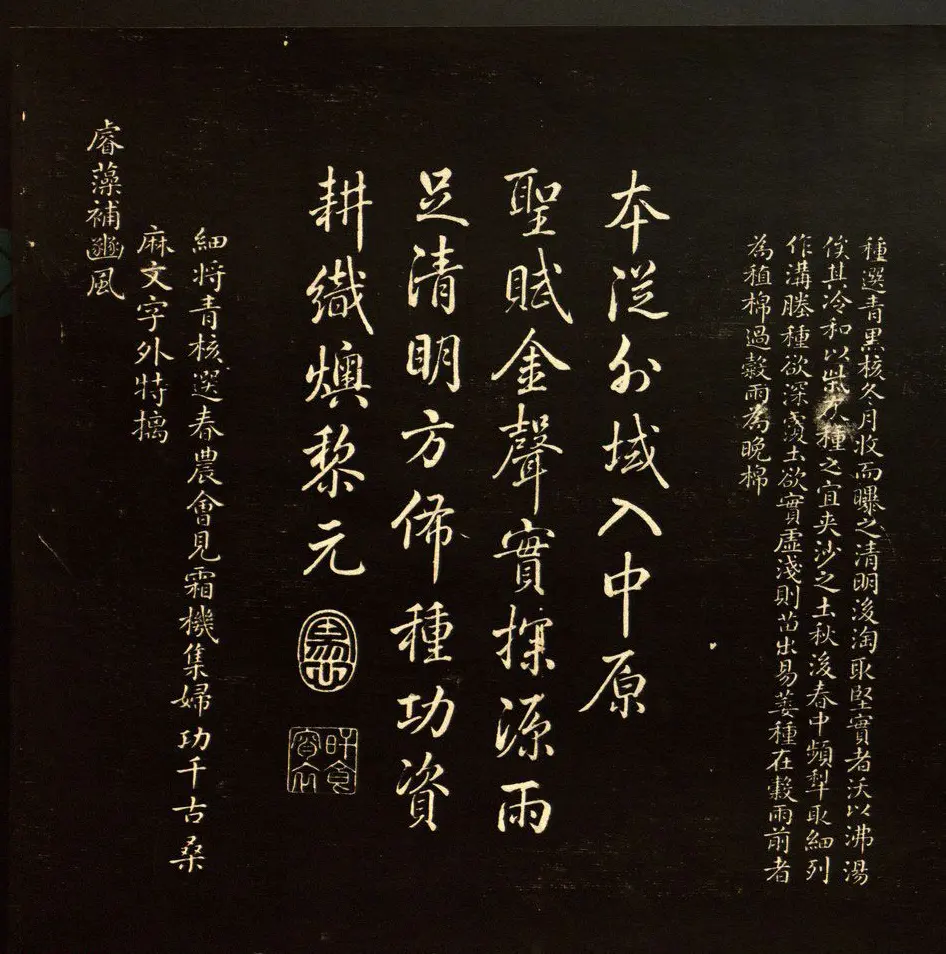 種選青黑核冬月收而曝之清明後淘取堅實者沃以沸湯
俟其冷和以柴灰種之宜夾沙之土秋後春中頻犁取細列
作溝塍種欲深覆土欲實虛淺則苗出易萎種在穀雨前者
為植棉過穀雨為晚棉
本從外域入中原
聖賦金聲實探源雨
足清明方佈種功資
耕織燠黎元
細將青核選春農會見霜機集婦功千古桑
麻文字外特摛
睿藻補豳風